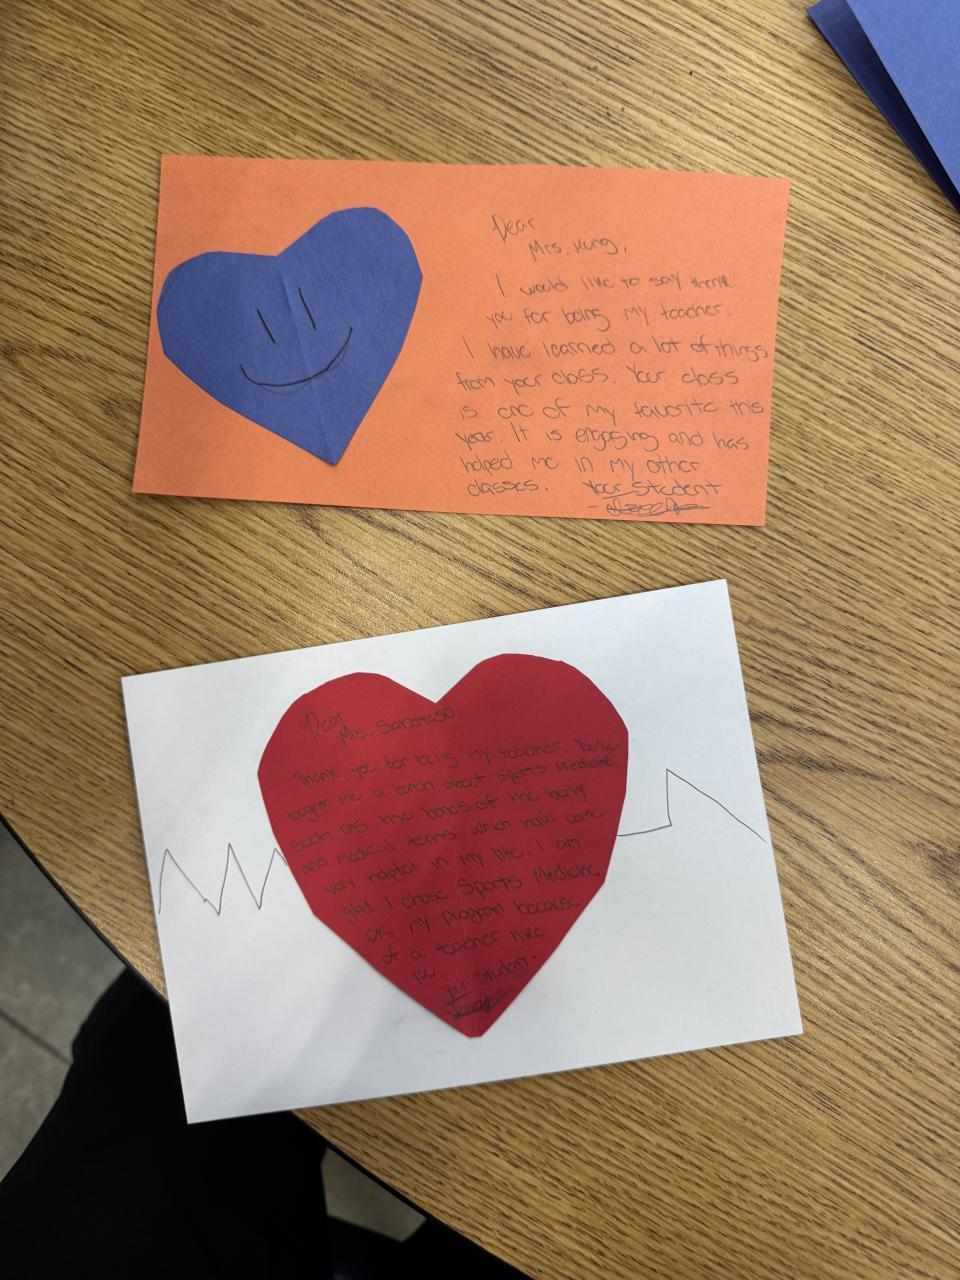 Dear
Mrs. Hung,
I would like to say thank
you for being my teacher.
I have learned a lot of things
from your class. Your class
is one of my favorite this
year. It is engaging and has
helped me in my other
classes. Your Student
Dear
Mrs. Sabataso
Thank you for being my teacher. You've
taught me a bunch about Sports Medicine
such as the bones of the body
and medical terms which have come
very helpful in my life. I am
glad I chose Sports Medicine
as my program because
of a teacher like
you.
Your Student-